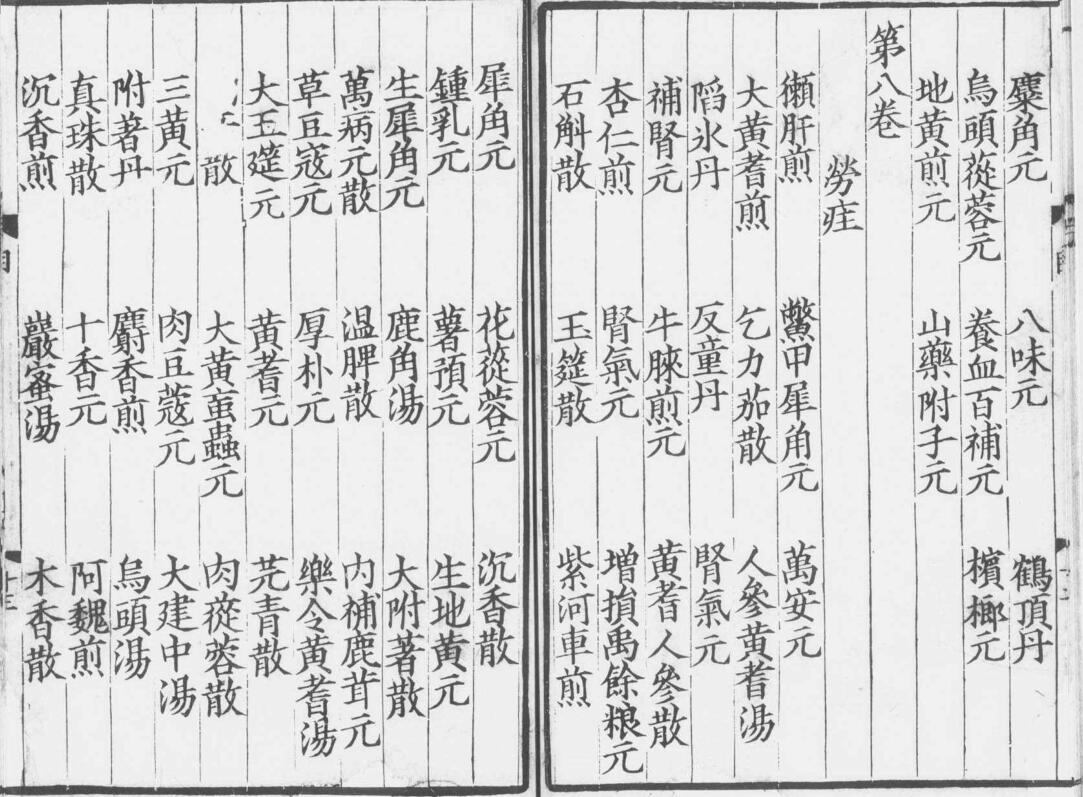 麋角元 八味元 鶴頂丹
烏頭蓯蓉元 養血百補元 檳榔元
地黄煎元 山藥附子元
第八卷
勞疰
獺肝煎 鱉甲犀角元 萬安元
大黄耆煎 乞力茄散 人參黄耆湯
䧟氷丹 反童丹 腎氣元
補腎元 牛膝煎元 黄耆人參散
杏仁煎 腎氣元 增損禹餘粮元
石斛散 玉筵散 紫河車煎
犀角元 花蓯蓉元 沉香散
鍾乳元 薯預元 生地黄元
生犀角元 鹿角湯 大附著散
萬病元散 温脾散 内補鹿茸元
草豆寇元 厚朴元 樂令黄耆湯
大玉筵元 黄耆元 芫青散
散 大黄䖟蟲元 肉蓯蓉散
三黄元 肉豆蔻元 大建中湯
附著丹 麝香煎 烏頭湯
真珠散 十香元 阿魏煎
沉香煎 巖蜜湯 木香散